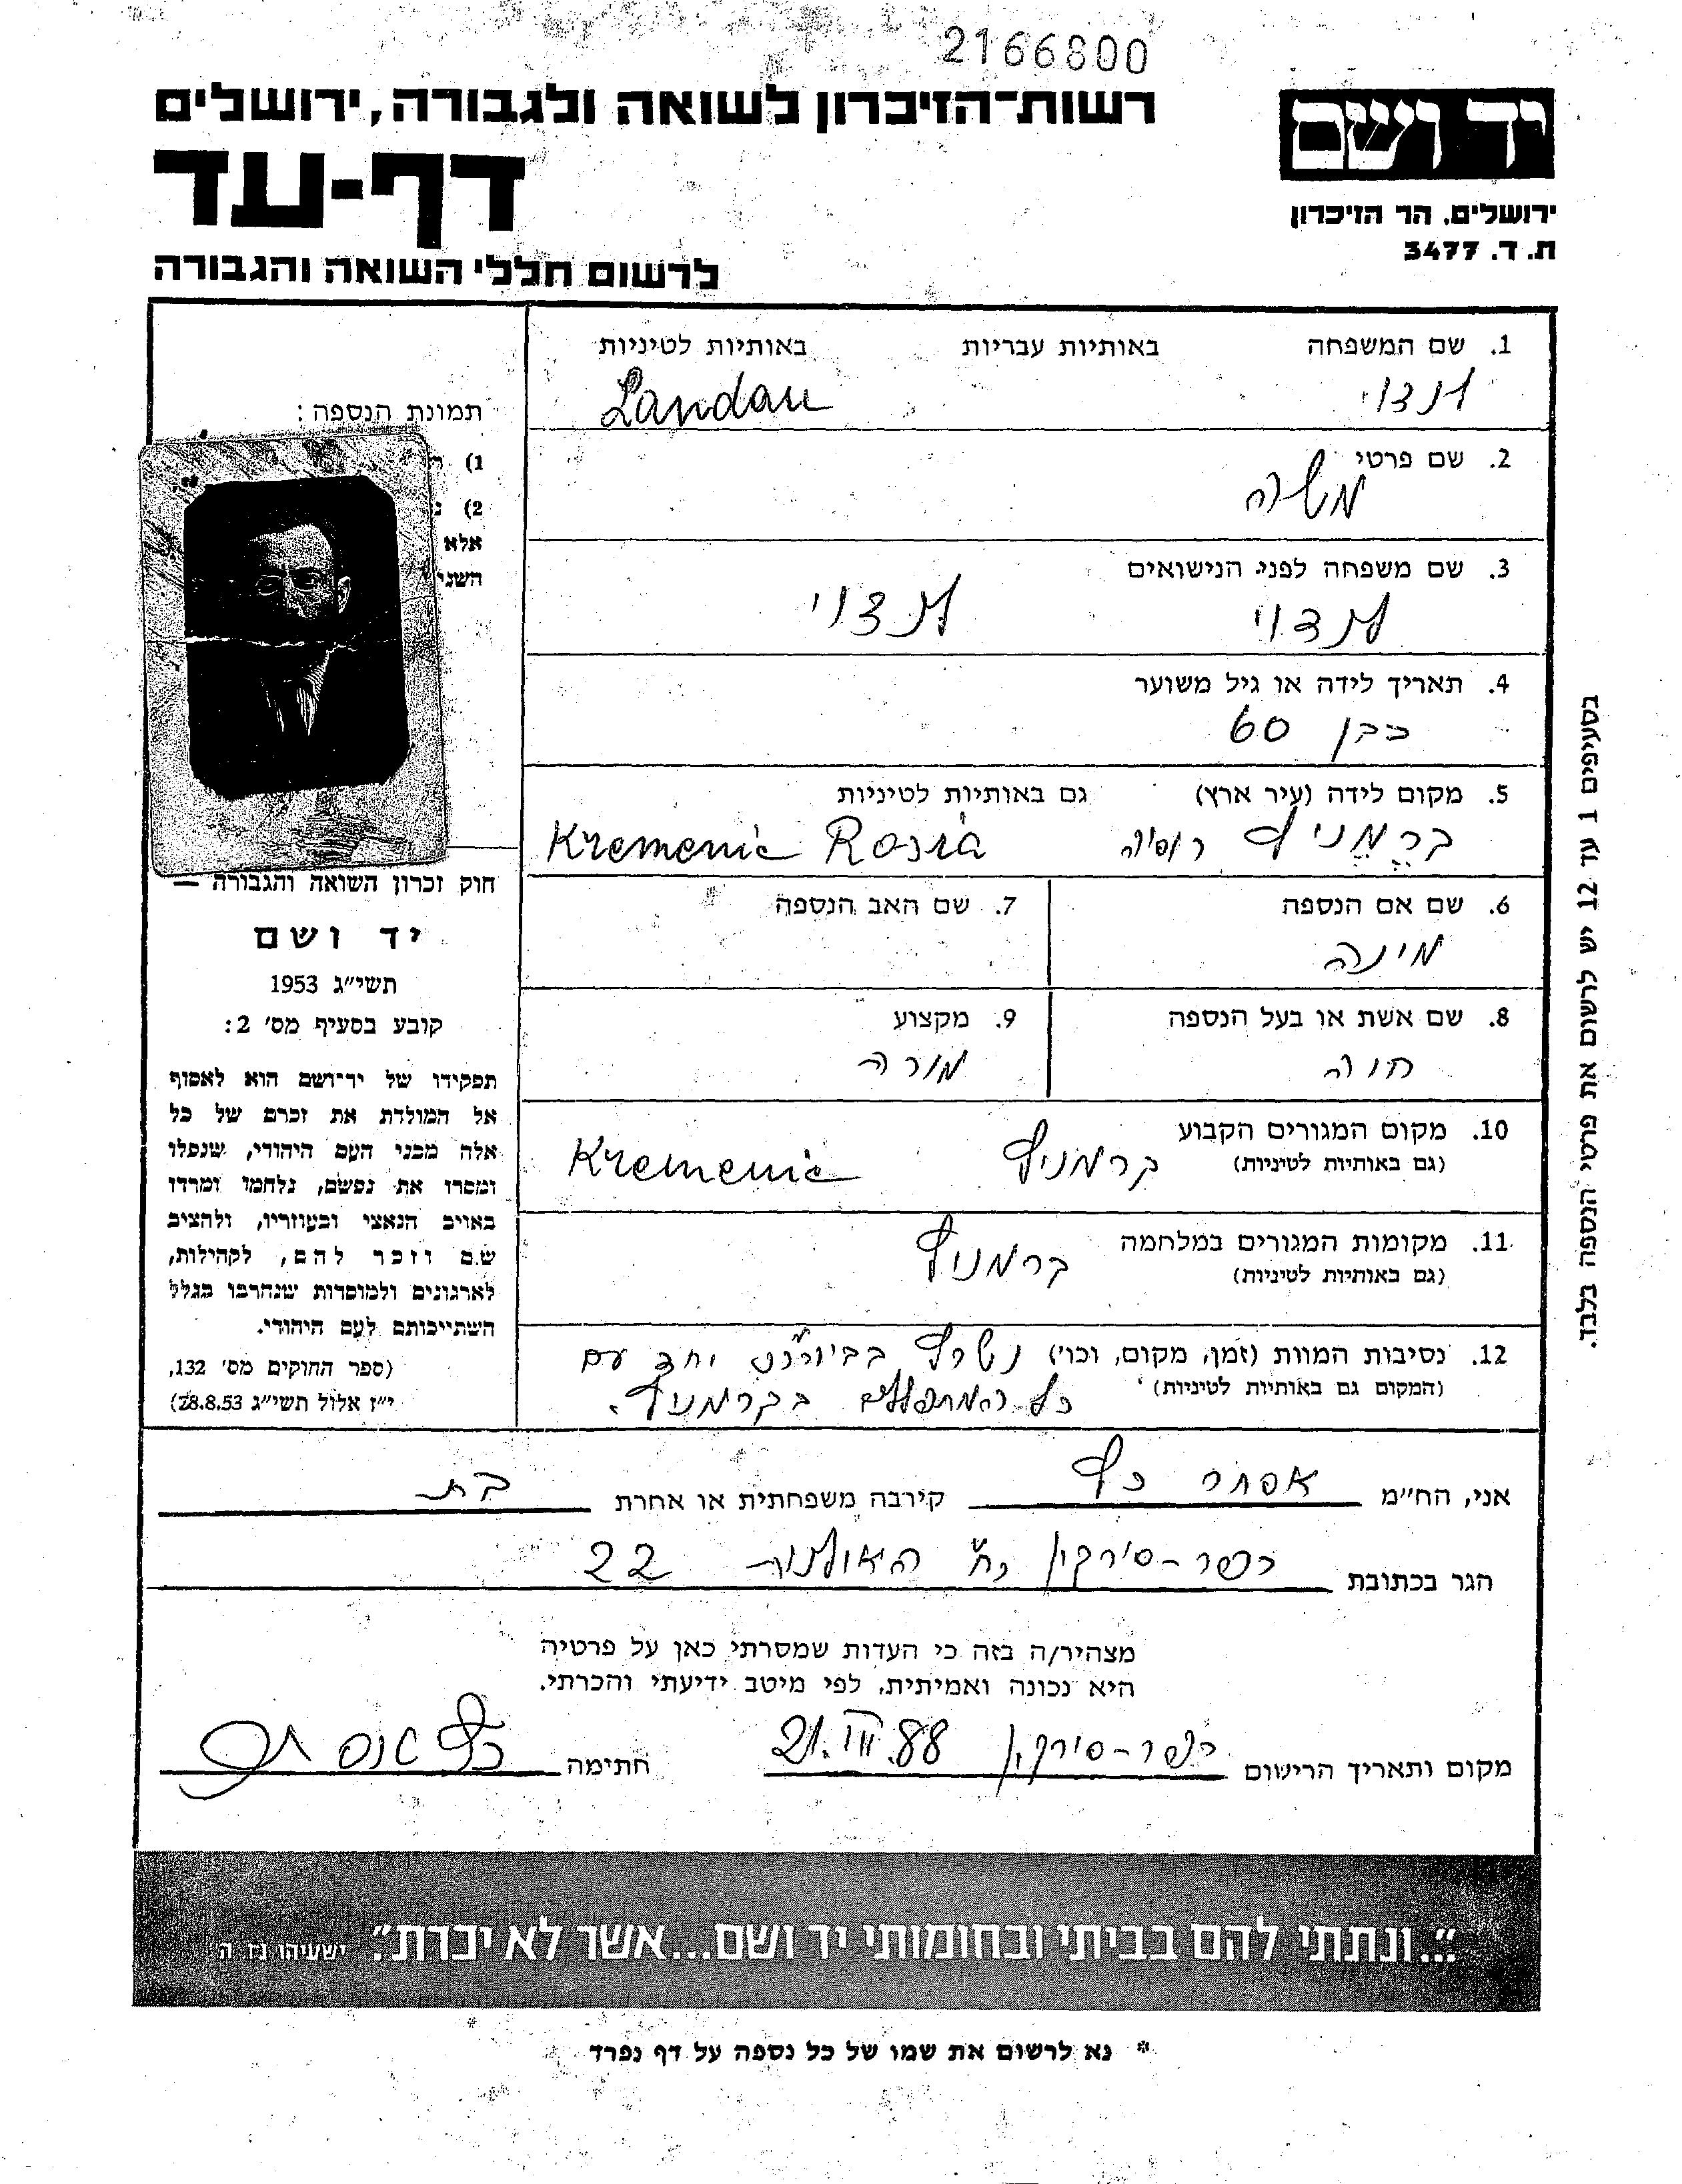 2166800
רשות-הזיכרון לשואה ולגבורה, ירושלים
יד ושם
דף-עד
ירושלים, הר הזיכרון
ת. ד. 3477
לרשום חללי השואה והגבורה
1. שם המשפחה באותיות עבריות באותיות לטיניות
לנדוי Landau
2. שם פרטי
משה
3. שם משפחה לפני הנישואים
לנדוי לנדוי
4. תאריך לידה או גיל משוער
כבן 60
5. מקום לידה (עיר ארץ) גם באותיות לטיניות
קרמניץ רוסיה Kremenic Rosia
6. שם אם הנספה 7. שם האב הנספה
מינה
8. שם אשת או בעל הנספה 9. מקצוע
חוה מורה
10. מקום המגורים הקבוע
(גם באותיות לטיניות) קרמניץ Kremenic
11. מקומות המגורים במלחמה
(גם באותיות לטיניות) קרמניץ
12. נסיבות המוות (זמן, מקום, וכו') נשרף יחד עם
(המקום גם באותיות לטיניות) כל המתפללים בקרמניץ.
תמונת הנספה:
1)
2)
אלא
חוק זכרון השואה והגבורה —
יד ושם
תשי״ג 1953
קובע בסעיף מס' 2:
תפקידו של יד-ושם הוא לאסוף
אל המולדת את זכרם של כל
אלה מבני העם היהודי, שנפלו
ומסרו את נפשם, נלחמו ומרדו
באויב הנאצי ובעוזריו, ולהציב
שם וזכר להם, לקהילות,
לארגונים ולמוסדות שנחרבו בגלל
השתייכותם לעם היהודי.
(ספר החוקים מס' 132,
י״ז אלול תשי״ג 28.8.53)
בסעיפים 1 עד 12 יש לרשום את פרטי הנספה בלבד.
אני, הח״מ אסתר כץ קירבה משפחתית או אחרת בת
הגר בכתובת כפר-סירקין רח' 22
מצהיר/ה בזה כי העדות שמסרתי כאן על פרטיה
היא נכונה ואמיתית, לפי מיטב ידיעתי והכרתי.
מקום ותאריך הרישום כפר-סירקין 21.III.88 חתימה כץ אסתר
״...ונתתי להם בביתי ובחומותי יד ושם...אשר לא יכרת״. ישעיהו נו ה
* נא לרשום את שמו של כל נספה על דף נפרד